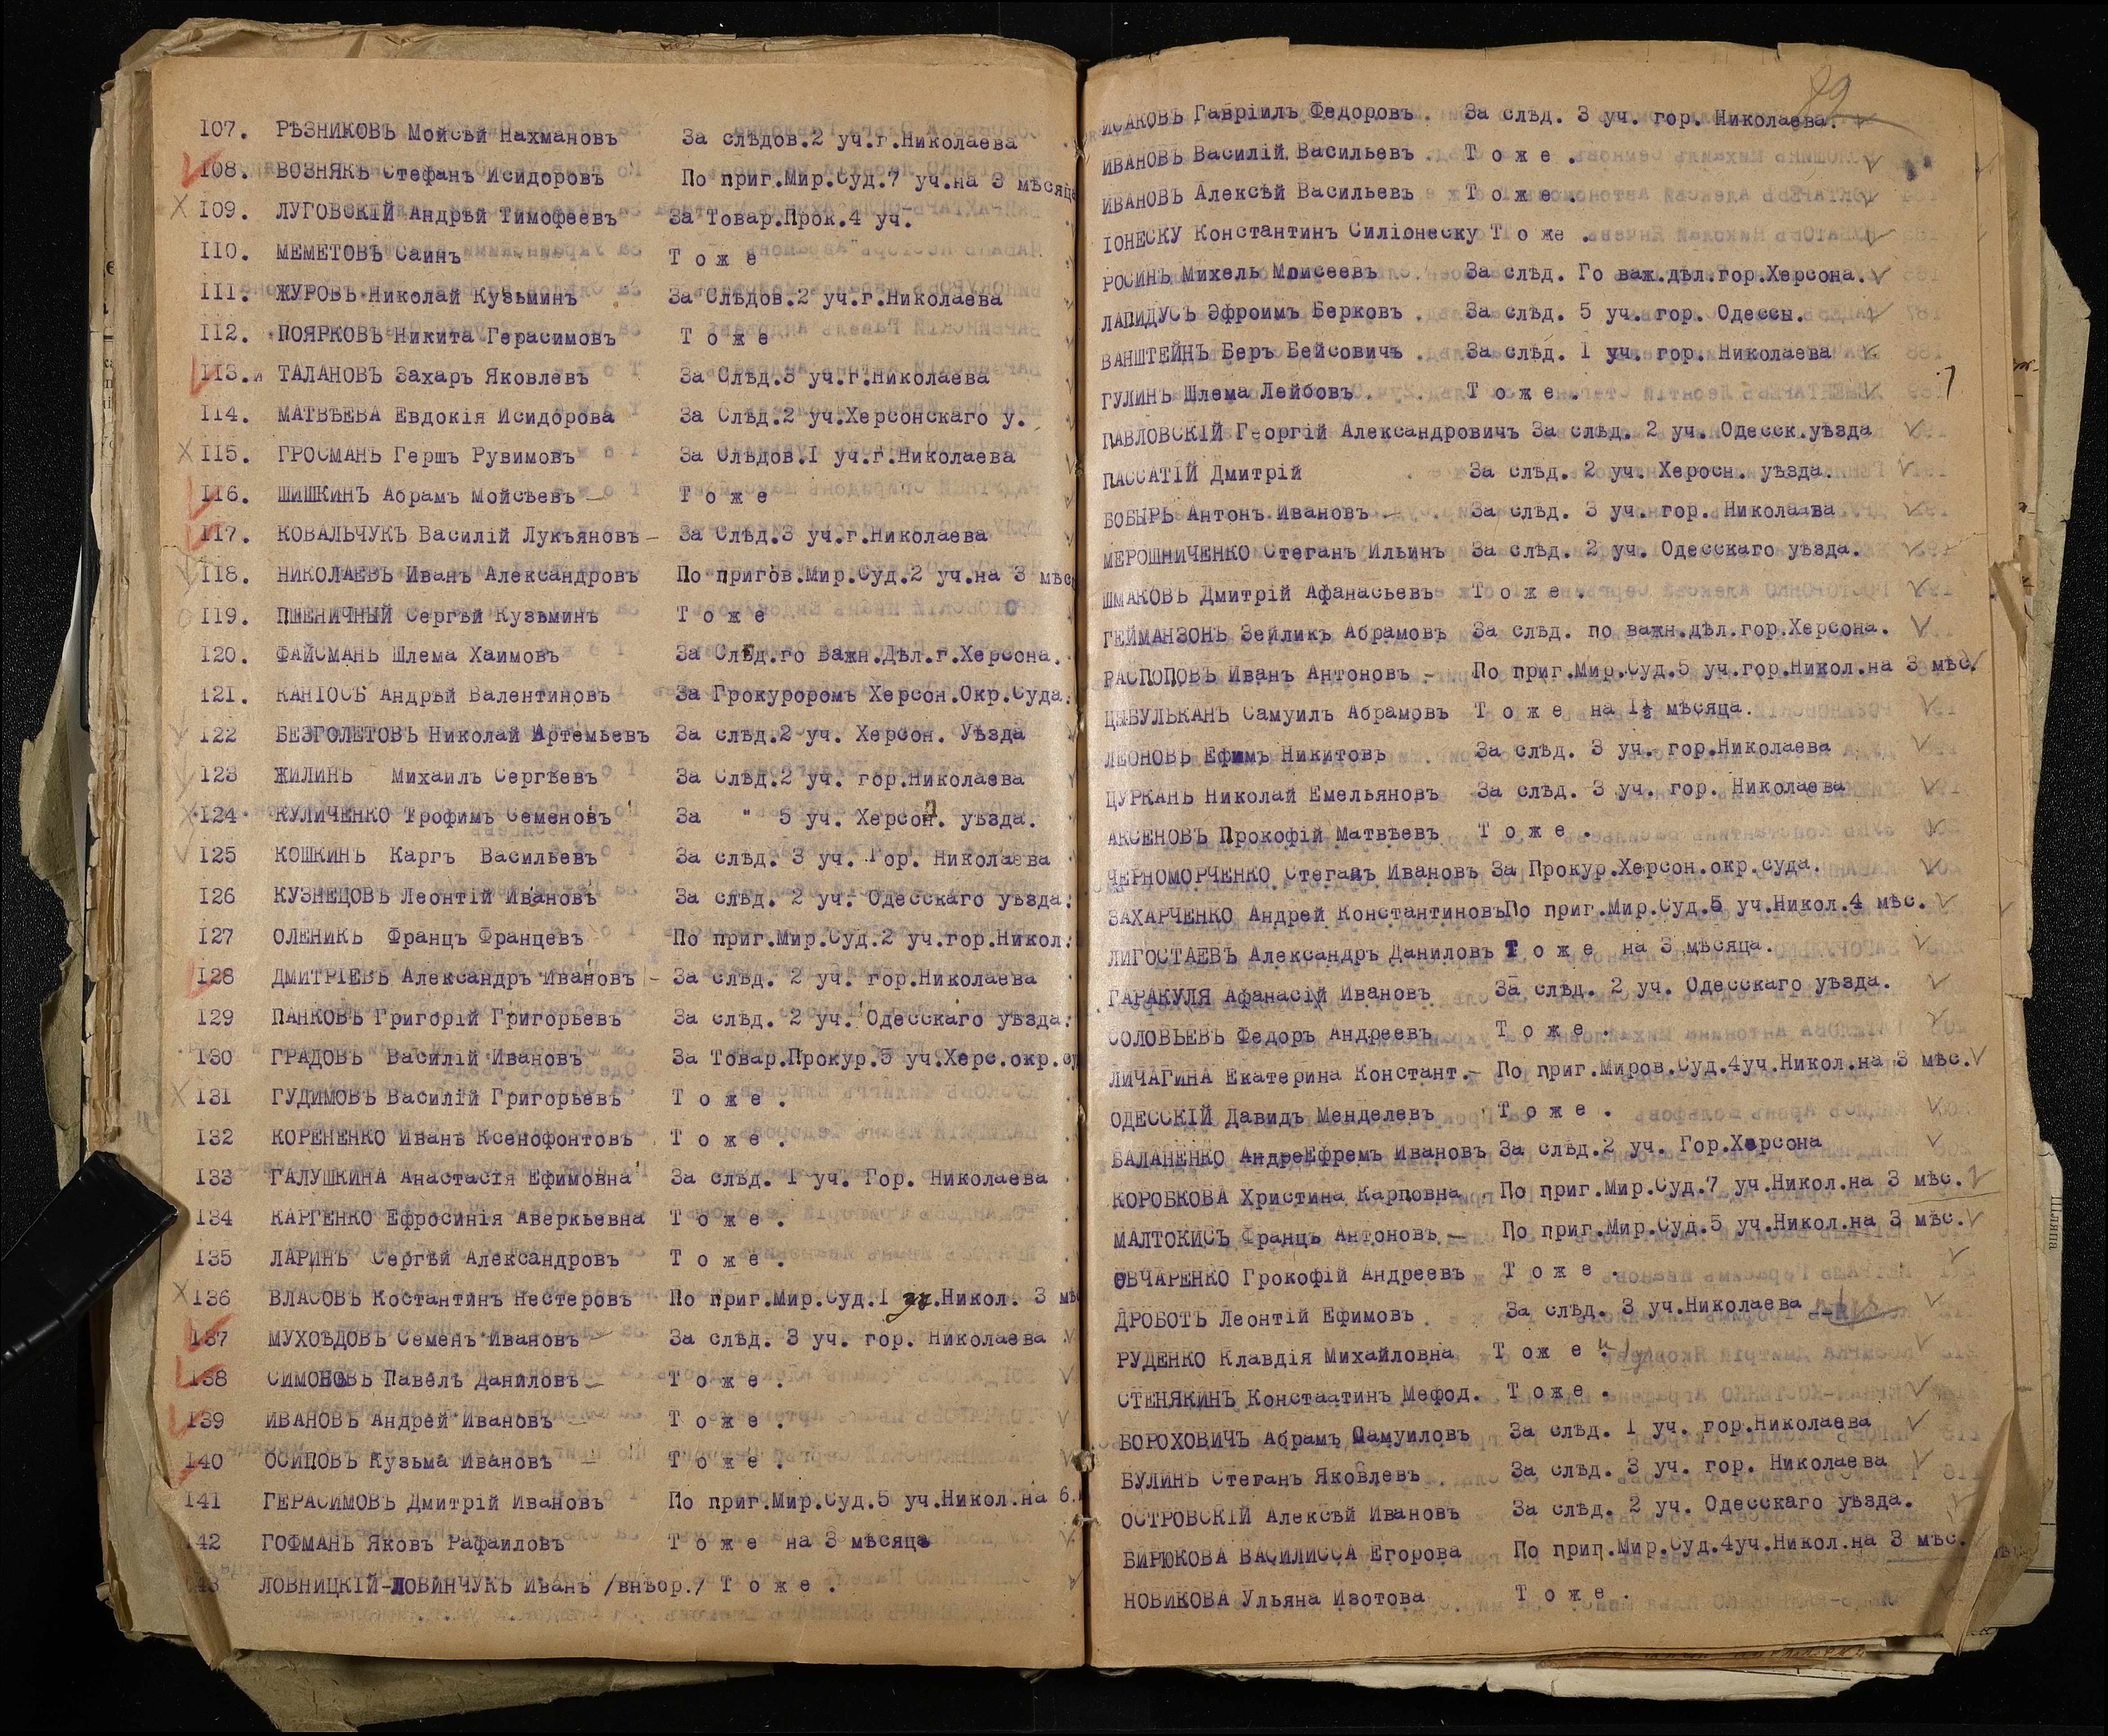 107. РѢЗНИКОВЪ Мойсѣй Нахмановъ За слѣдов.2 уч.г.Николаева
108. ВОЗНЯКЪ Стефанъ Исидоровъ По приг.Мир.Суд.7 уч.на 3 мѣсяца
109. ЛУГОВСКІЙ Андрѣй Тимофеевъ За Товар.Прок.4 уч.
110. МЕМЕТОВЪ Саинъ Тоже
111. ЖУРОВЪ Николай Кузьминъ За Слѣдов.2 уч.г.Николаева
112. ПОЯРКОВЪ Никита Герасимовъ Тоже
113. ТАЛАНОВЪ Захаръ Яковлевъ За Слѣд.3 уч.г.Николаева
114. МАТВѢЕВА Евдокія Исидорова За Слѣд.2 уч.Херсонскаго у.
115. ГРОСМАНЪ Гершъ Рувимовъ За Слѣдов.I уч.г.Николаева
116. ШИШКИНЪ Абрамъ Мойсѣевъ — Тоже
117. КОВАЛЬЧУКЪ Василій Лукъяновъ — За Слѣд.3 уч.г.Николаева
118. НИКОЛАЕВЪ Иванъ Александровъ По пригов.Мир.Суд.2 уч.на 3 мѣс
119. ПШЕНИЧНЫЙ Сергѣй Кузьминъ Тоже
120. ФАЙСМАНЪ Шлема Хаимовъ За Слѣд.го Важн.Дѣл.г.Херсона.
121. КАНІОСЪ Андрѣй Валентиновъ За Грокуроромъ Херсон.Окр.Суда.
122 БЕЗГОЛЕТОВЪ Николай Артемьевъ За слѣд.2 уч. Херсон. Уѣзда
123 ЖИЛИНЪ Михаилъ Сергѣевъ За Слѣд.2 уч. гор.Николаева
124 КУЛИЧЕНКО Трофимъ Семеновъ За " 5 уч. Херсон. уѣзда.
125 КОШКИНЪ Каргъ Васильевъ За слѣд. 3 уч. Гор. Николаева
126 КУЗНЕЦОВЪ Леонтій Ивановъ За слѣд. 2 уч. Одесскаго уѣзда.
127 ОЛЕНИКЪ Францъ Францевъ По приг.Мир.Суд.2 уч.гор.Никол.
128 ДМИТРІЕВЪ Александръ Ивановъ — За слѣд. 2 уч. гор.Николаева
129 ПАНКОВЪ Григорій Григорьевъ За слѣд. 2 уч. Одесскаго уѣзда.
130 ГРАДОВЪ Василій Ивановъ За Товар.Прокур.5 уч.Херс.окр.су
131 ГУДИМОВЪ Василій Григорьевъ Тоже.
132 КОРЕНЕНКО Иванъ Ксенофонтовъ Тоже.
133 ГАЛУШКИНА Анастасія Ефимовна За слѣд. 1 уч. Гор. Николаева
134 КАРГЕНКО Ефросинія Аверкьевна Тоже.
135 ЛАРИНЪ Сергѣй Александровъ Тоже.
136 ВЛАСОВЪ Костантинъ Нестеровъ По приг.Мир.Суд.I уч.Никол. 3 мѣ
137 МУХОѢДОВЪ Семенъ Ивановъ — За слѣд. 3 уч. гор. Николаева
138 СИМОНОВЪ Павелъ Даниловъ — Тоже.
139 ИВАНОВЪ Андрей Ивановъ — Тоже.
140 ОСИПОВЪ Кузьма Ивановъ — Тоже.
141 ГЕРАСИМОВЪ Дмитрій Ивановъ По приг.Мир.Суд.5 уч.Никол.на 6.
42 ГОФМАНЪ Яковъ Рафаиловъ Тоже на 3 мѣсяца
43 ЛОВНИЦКІЙ-ЛОВИНЧУКЪ Иванъ /внѣор./ Тоже.
89
ИСАКОВЪ Гавріилъ Федоровъ. За слѣд. 3 уч. гор. Николаева.
ИВАНОВЪ Василій Васильевъ. Тоже.
ИВАНОВЪ Алексѣй Васильевъ Тоже.
ІОНЕСКУ Константинъ Силіонеску Тоже.
РОСИНЪ Михель Моисеевъ За слѣд. Го важ.дѣл.гор.Херсона.
ЛАПИДУСЪ Эфроимъ Берковъ. За слѣд. 5 уч. гор. Одессы.
ВАНШТЕЙНЪ Беръ Бейсовичъ. За слѣд. I уч. гор. Николаева
ГУЛИНЪ Шлема Лейбовъ Тоже.
ПАВЛОВСКІЙ Георгій Александровичъ За слѣд. 2 уч. Одесск.уѣзда
ПАССАТІЙ Дмитрій За слѣд. 2 уч. Херосн. уѣзда.
БОБЫРЬ Антонъ Ивановъ — За слѣд. 3 уч. гор. Николаева
МЕРОШНИЧЕНКО Стеганъ Ильинъ За слѣд. 2 уч. Одесскаго уѣзда.
ШМАКОВЪ Дмитрій Афанасьевъ Тоже.
ГЕЙМАНЗОНЪ Зейликъ Абрамовъ За слѣд. по важн.дѣл.гор.Херсона.
РАСПОПОВЪ Иванъ Антоновъ — По приг.Мир.Суд.5 уч.гор.Никол.на 3 мѣс.
ЦЫБУЛЬКАНЪ Самуилъ Абрамовъ Тоже на 1½ мѣсяца.
ЛЕОНОВЪ Ефимъ Никитовъ За слѣд. 3 уч. гор.Николаева
ЦУРКАНЪ Николай Емельяновъ За слѣд. 3 уч. гор. Николаева
АКСЕНОВЪ Прокофій Матвѣевъ Тоже.
ЧЕРНОМОРЧЕНКО Стеганъ Ивановъ За Прокур.Херсон.окр.суда.
ЗАХАРЧЕНКО Андрей КонстантиновъПо приг.Мир.Суд.5 уч.Никол.4 мѣс.
ЛИГОСТАЕВЪ Александръ Даниловъ Тоже на 3 мѣсяца.
ГАРАКУЛЯ Афанасій Ивановъ За слѣд. 2 уч. Одесскаго уѣзда.
СОЛОВЬЕВЪ Федоръ Андреевъ Тоже.
ЛИЧАГИНА Екатерина Констант.— По приг.Миров.Суд.4уч.Никол.на 3 мѣс.
ОДЕССКІЙ Давидъ Менделевъ Тоже.
БАЛАНЕНКО АндреЕфремъ Ивановъ За слѣд.2 уч. Гор.Херсона
КОРОБКОВА Христина Карповна По приг.Мир.Суд.7 уч.Никол.на 3 мѣс.
МАЛТОКИСЪ Францъ Антоновъ — По приг.Мир.Суд.5 уч.Никол.на 3 мѣс.
ОВЧАРЕНКО Грокофій Андреевъ Тоже.
ДРОБОТЪ Леонтій Ефимовъ За слѣд. 3 уч.Николаева
РУДЕНКО Клавдія Михайловна Тоже.
СТЕНЯКИНЪ Констаатинъ Мефод. Тоже.
БОРОХОВИЧЪ Абрамъ Самуиловъ За слѣд. 1 уч. гор.Николаева
БУЛИНЪ Стеганъ Яковлевъ За слѣд. 3 уч. гор. Николаева
ОСТРОВСКІЙ Алексѣй Ивановъ За слѣд. 2 уч. Одесскаго уѣзда.
БИРЮКОВА ВАСИЛИССА Егорова По приг.Мир.Суд.4уч.Никол.на 3 мѣс.
НОВИКОВА Ульяна Изотова Тоже.